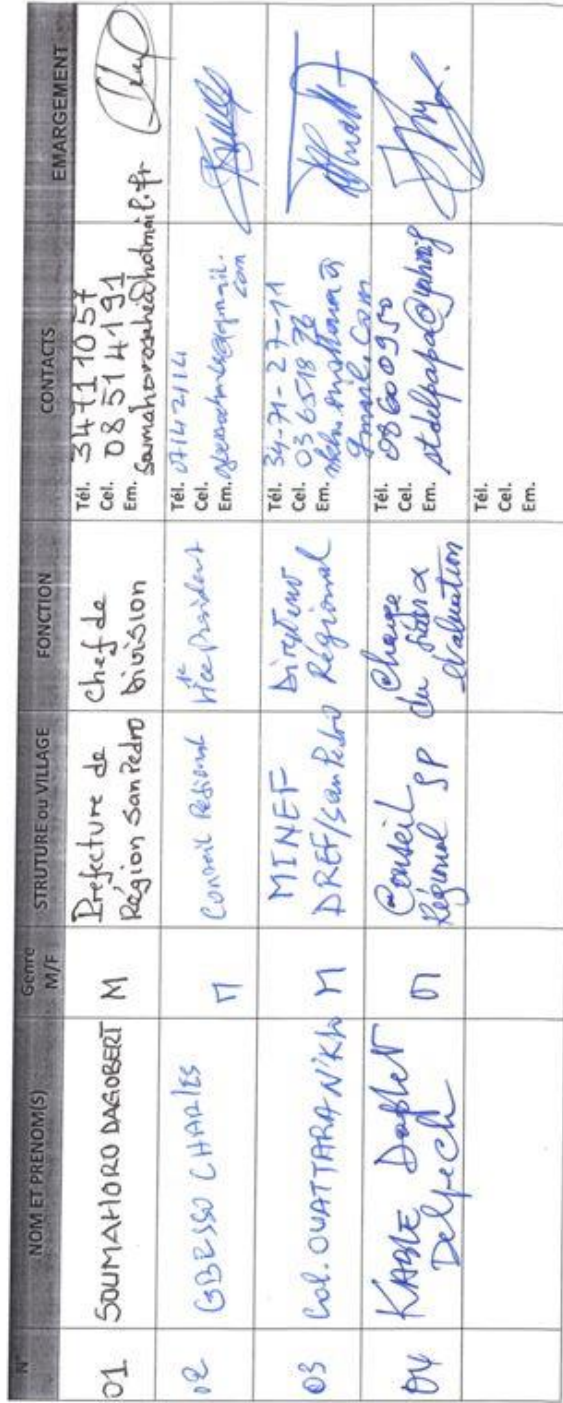 N° NOM ET PRENOM(S) Genre M/F STRUTURE ou VILLAGE FONCTION CONTACTS EMARGEMENT
01 SOUMAHORO DAGOBERT M Prefecture de Région San Pedro Chef de Division
Tél. 34711057
Cel. 08514191
Em.
02 CHARLES M Conseil Regional Vice President
Tél. 07142114
Cel.
Em.
03 Col. OUATTARA N'Kho M MINEF DREF/San Pedro Directeur Régional
Tél. 34-71-27-11
Cel. 03651876
Em. gmail.com
04 KABLE Delpech M Conseil Régional SP Chargé du Suivi evaluation
Tél. 08600950
Cel.
Em.
Tél.
Cel.
Em.